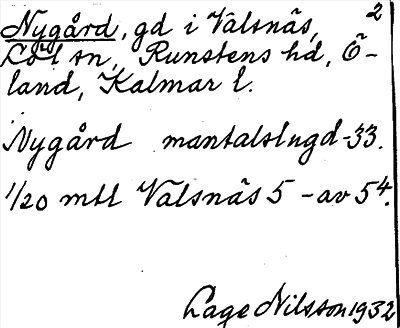 2
Nygård, gd i Valsnäs,
Löt sn, Runstens hd, Ö-
land, Kalmar l.
Nygård mantalslngd-33.
1/20 mtl Valsnäs 5 - av 5⁴.
Lage Nilsson 1932